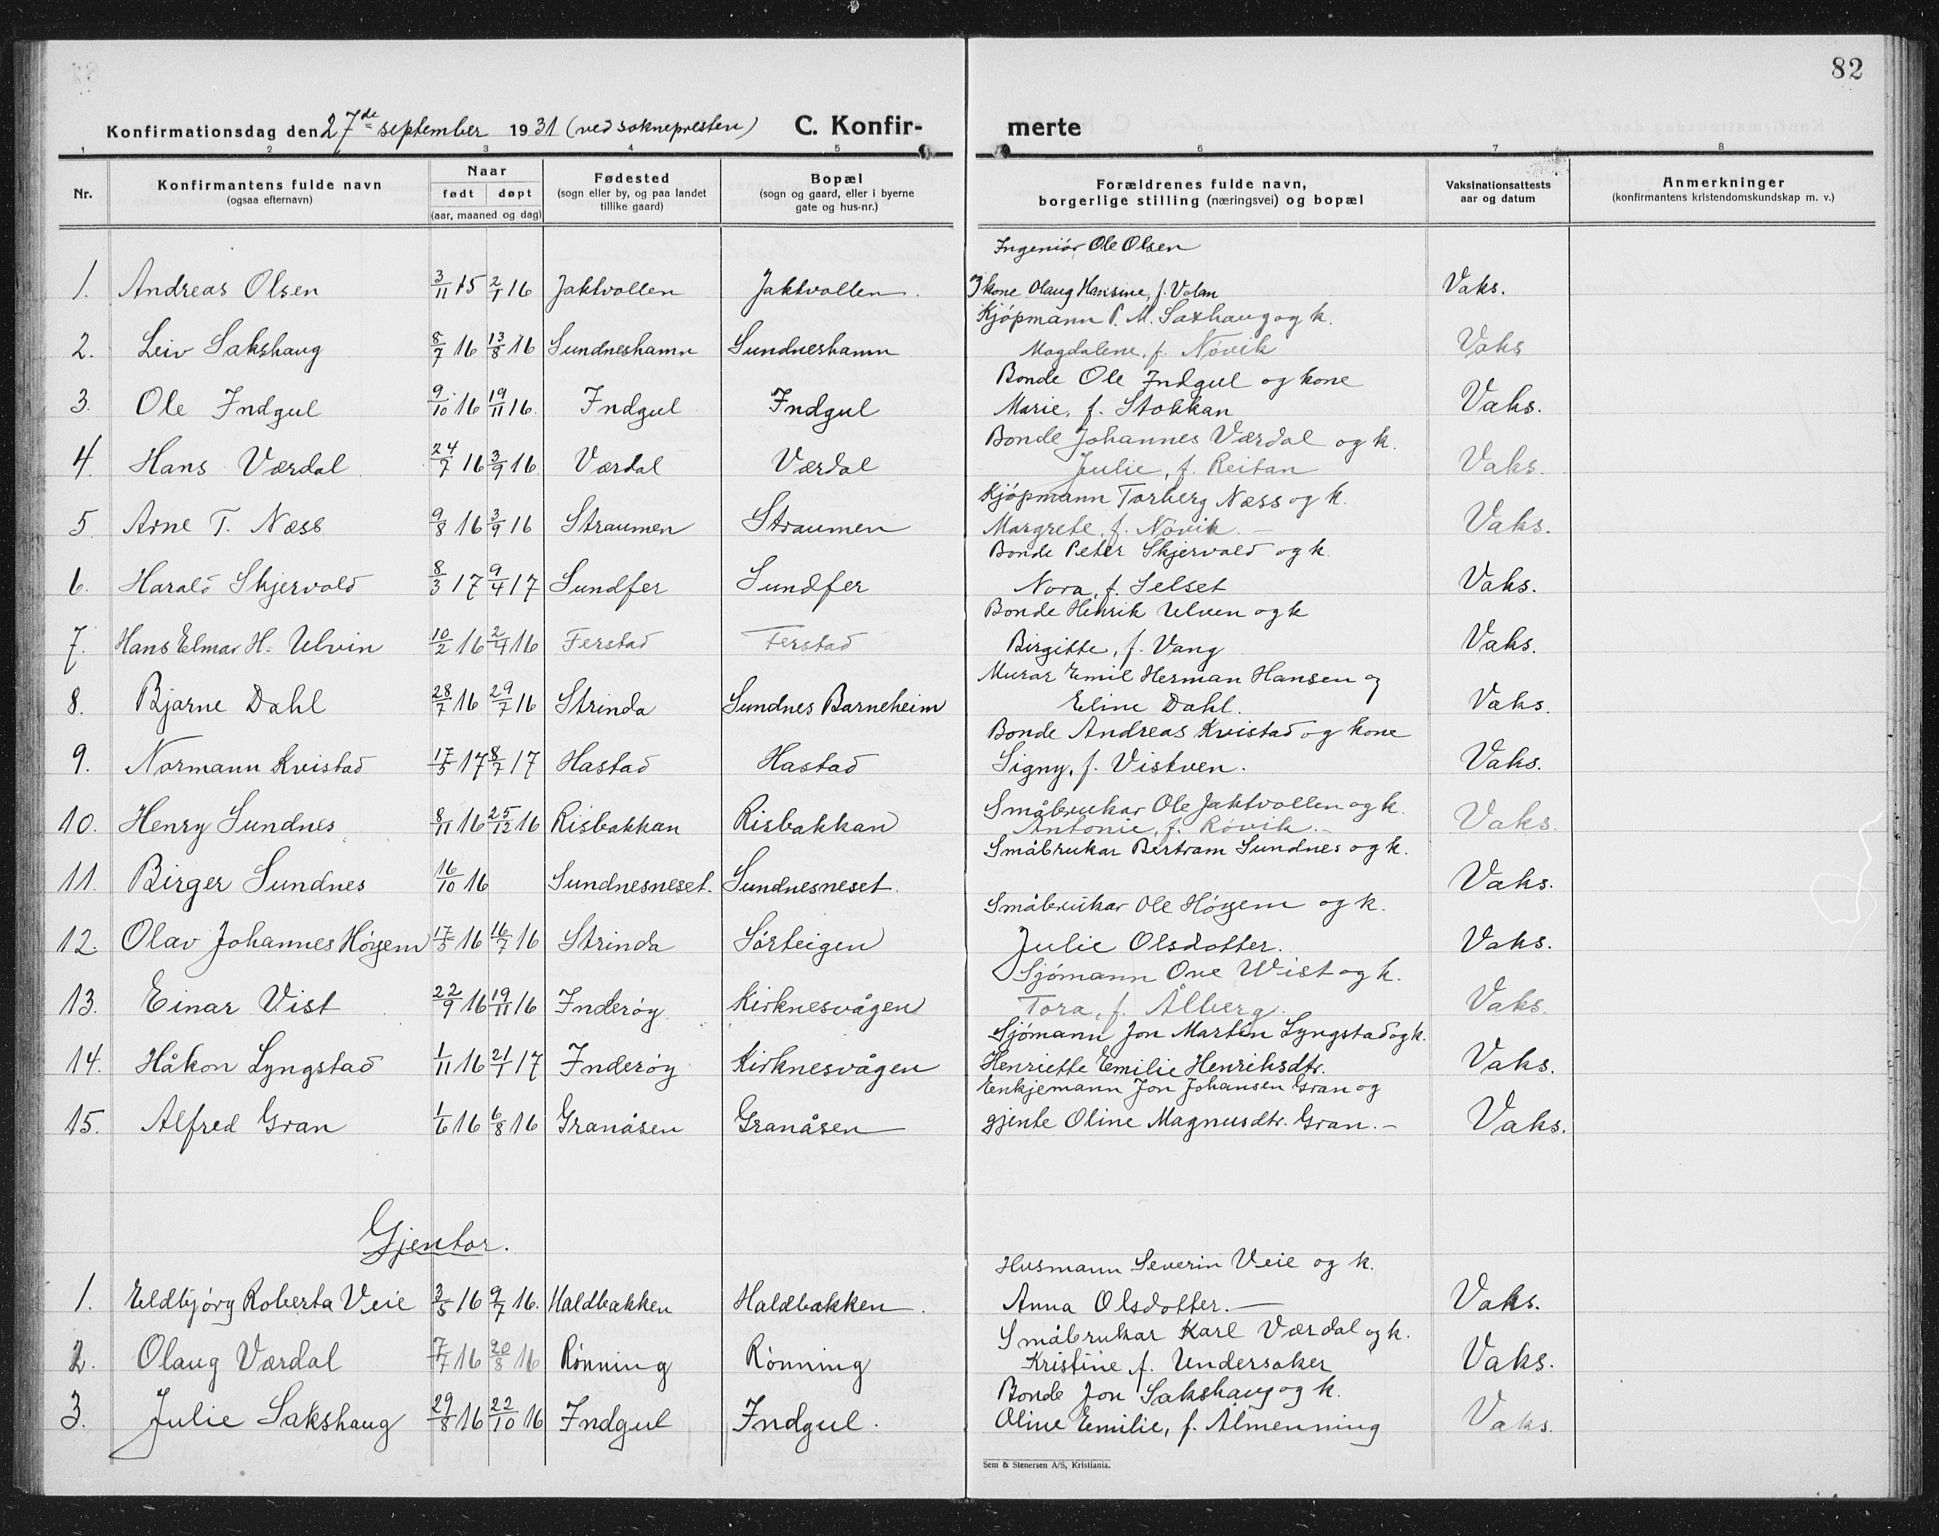 82
Konfirmationsdag den 27de september 1931 (ved soknepresten) C. Konfir- merte
1 2 3 4 5 6 7 8
Nr. Konfirmantens fulde navn (ogsaa efternavn) Naar født døpt (aar, maaned og dag) Fødested (sogn eller by, og paa landet tillike gaard) Bopæl (sogn og gaard, eller i byerne gate og hus-nr.) Forældrenes fulde navn, borgerlige stilling (næringsvei) og bopæl Vaksinationsattests aar og datum Anmerkninger (konfirmantens kristendomskundskap m. v.)
Ingeniör Ole Olsen
1. Andreas Olsen 3/11 15 2/1 16 Jaktvollen Jaktvollen. kone Olaug Hansine, f. Volan Vaks.
Kjøpmann P. M. Saxhaug og k.
2. Leiv Sakshaug 8/7 16 13/8 16 Sundneshamn Sundneshamn Magdalene, f. Növik Vaks
Bonde Ole Indgul og kone
3. Ole Indgul 9/10 16 19/11 16. Indgul Indgul Marie, f. Stokkan Vaks.
Bonde Johannes Værdal og k.
4. Hans Værdal 24/7 16 3/9 16 Værdal Værdal Julie, f. Reitan Vaks.
Kjøpmann Torberg Næss og k.
5. Arne T. Næss 9/8 16 3/9 16 Straumen Straumen Margrete, f. Növik. Vaks.
Bonde Peter Skjervold og k.
6. Harald Skjervold 8/3 17 9/4 17 Sundfer Sundfer Nora, f. Selset Vaks.
Bonde Henrik Ulven og k
7. Hans Elmar H. Ulvin 10/2 16 2/4 16 Ferstad Ferstad Birgitte, f. Vang Vaks.
Murar Emil Herman Hansen og
8. Bjarne Dahl 28/7 16 29/7 16 Strinda Sundnes Barneheim Eline Dahl. Vaks.
Bonde Andreas Kvistad og kone
9. Normann Kvistad 17/5 17 8/7 17 Hastad Hastad Signy, f. Vistven. Vaks.
Småbrukar Ole Jaktvollen og k.
10. Henry Sundnes 8/11 16 25/12 16 Risbakkan Risbakkan Antonie, f. Rövik. Vaks.
Småbrukar Bertram Sundnes og k.
11. Birger Sundnes 16/10 16 Sundnesneset. Sundnesneset. Vaks.
Småbrukar Ole Höyem og k.
12. Olav Johannes Höyem 17/5 16 16/7 16 Strinda Sörteigen Julie Olsdotter. Vaks.
Sjömann Ove Wist og k.
13. Einar Vist 22/9 16 19/11 16 Inderöy Kirknesvågen Tora, f. Ålberg Vaks.
Sjömann Jon Martin Lyngstad og k.
14. Håkon Lyngstad 1/11 16 21/1 17 Inderöy Kirknesvågen Henriette Emilie Henriksdtr. Vaks.
Enkjemann Jon Johansen Gran og
15. Alfred Gran 1/6 16 6/8 16 Granåsen Granåsen gjente Oline Magnusdtr. Gran. Vaks.
Gjentor.
Husmann Severin Veie og k.
1. Eldbjörg Roberta Veie 3/5 16 9/7 16. Haldbakken Haldbakken. Anna Olsdotter. Vaks.
Småbrukar Karl Værdal og k.
2. Olaug Værdal 7/7 16 20/8 16 Rönning Rönning Kristine f. Undersaker Vaks.
Bonde Jon Sakshaug og k.
3. Julie Sakshaug 29/8 16 22/10 16 Indgul Indgul. Oline Emilie, f. Almenning Vaks.
Sem & Stenersen A/S, Kristiania.